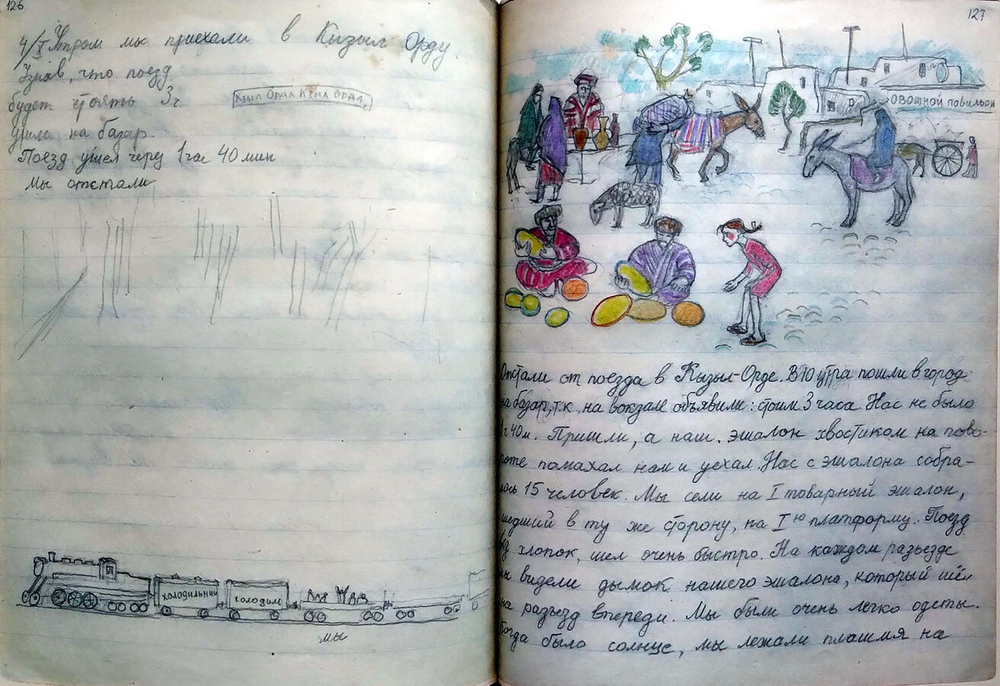 126
4/X Утром мы приехали в Кызыл Орду.
Узнав, что поезд
будет стоять 3 ч
ушли на базар.
Поезд ушел через 1 час 40 мин
Мы отстали
Кзыл Орда Кзыл Орда
холодильник
голодым
мы
127
овощной повильон
Отстали от поезда в Кызыл-Орде. В 10 утра пошли в город
на базар, т.к. на вокзале объявили: стоим 3 часа. Нас не было
1 ч 40 м. Пришли, а наш эшалон хвостиком на пово-
роте помахал нам и уехал. Нас с эшалона собра-
лось 15 человек. Мы сели на I товарный эшалон,
шедший в ту же сторону, на Iю платформу. Поезд
хлопок, шел очень быстро. На каждом разъезде
видели дымок нашего эшалона, который шёл
на разъезд впереди. Мы были очень легко одеты.
Когда было солнце, мы лежали плашмя на